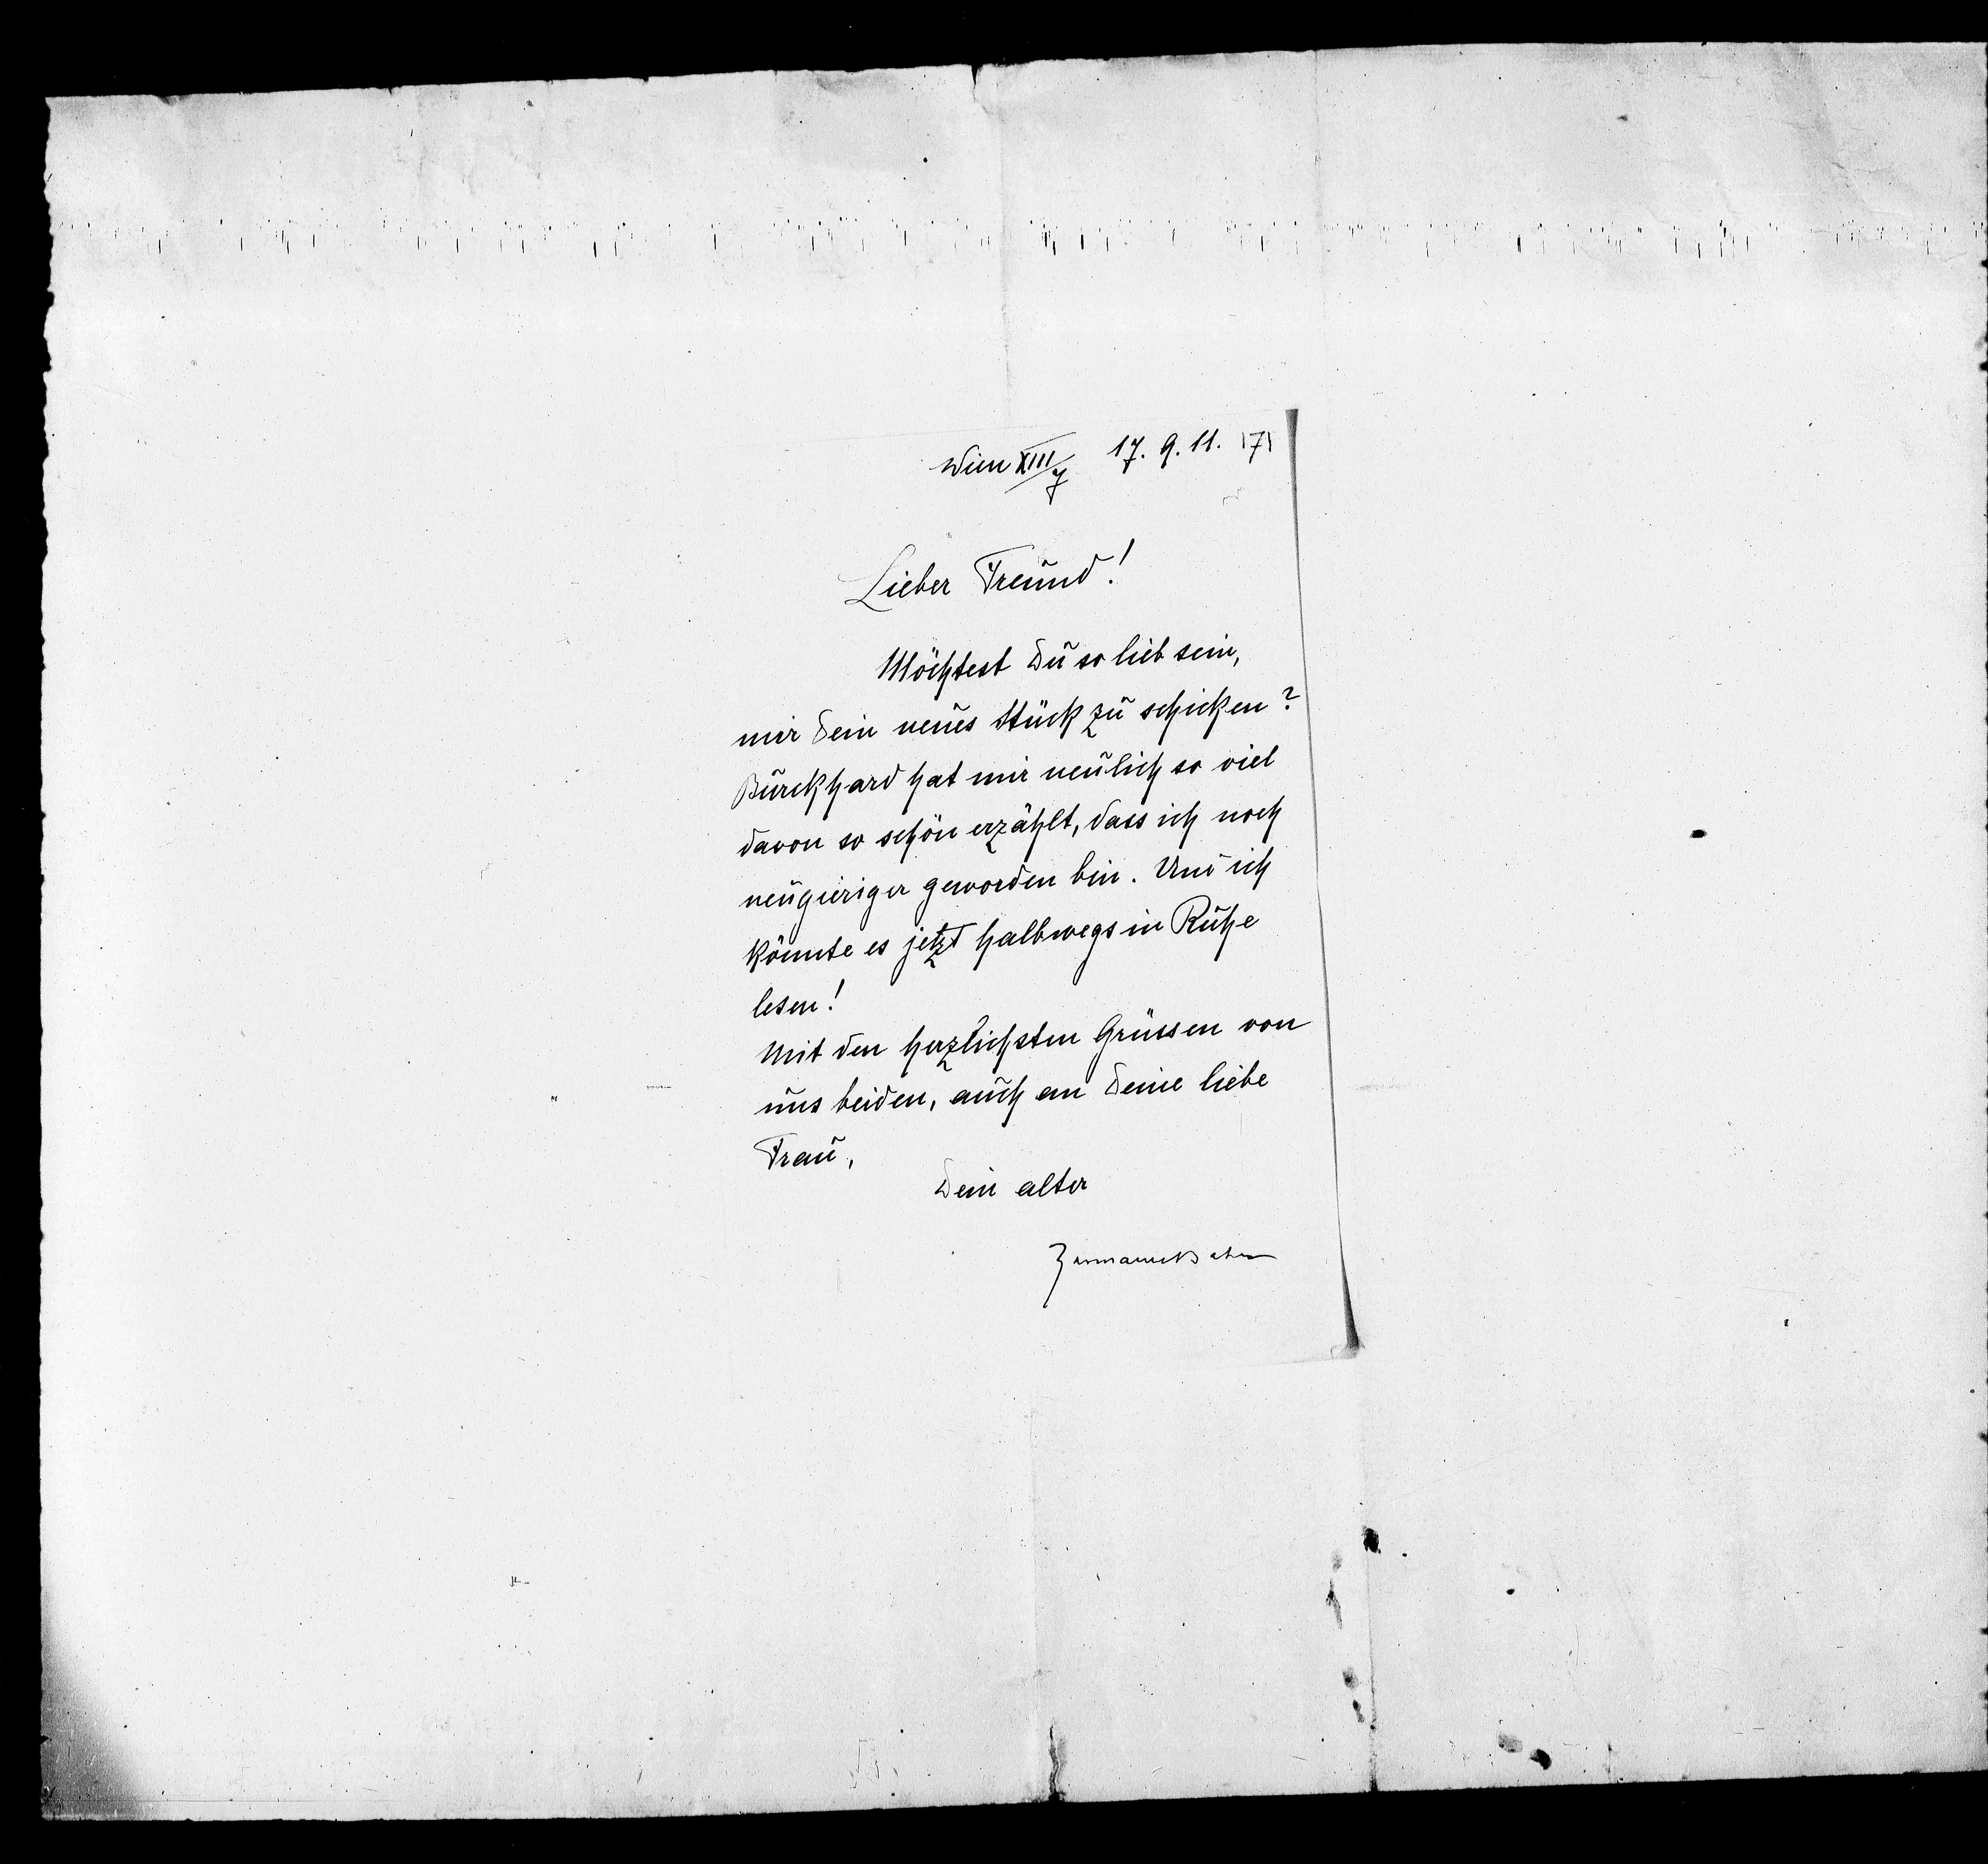 Wien XIII/7 17. 9. 11. |7|
Lieber Freund!
Möchtest Du so lieb sein,
mir Dein neues Stück zu schicken?
Burckhard hat mir neulich so viel
davon so schön erzählt, dass ich noch
neugieriger geworden bin. Und ich
könnte es jetzt halbwegs in Ruhe
lesen!
Mit den herzlichsten Grüssen von
uns beiden, auch an Deine liebe
Frau,
Dein alter
Hermann Bahr